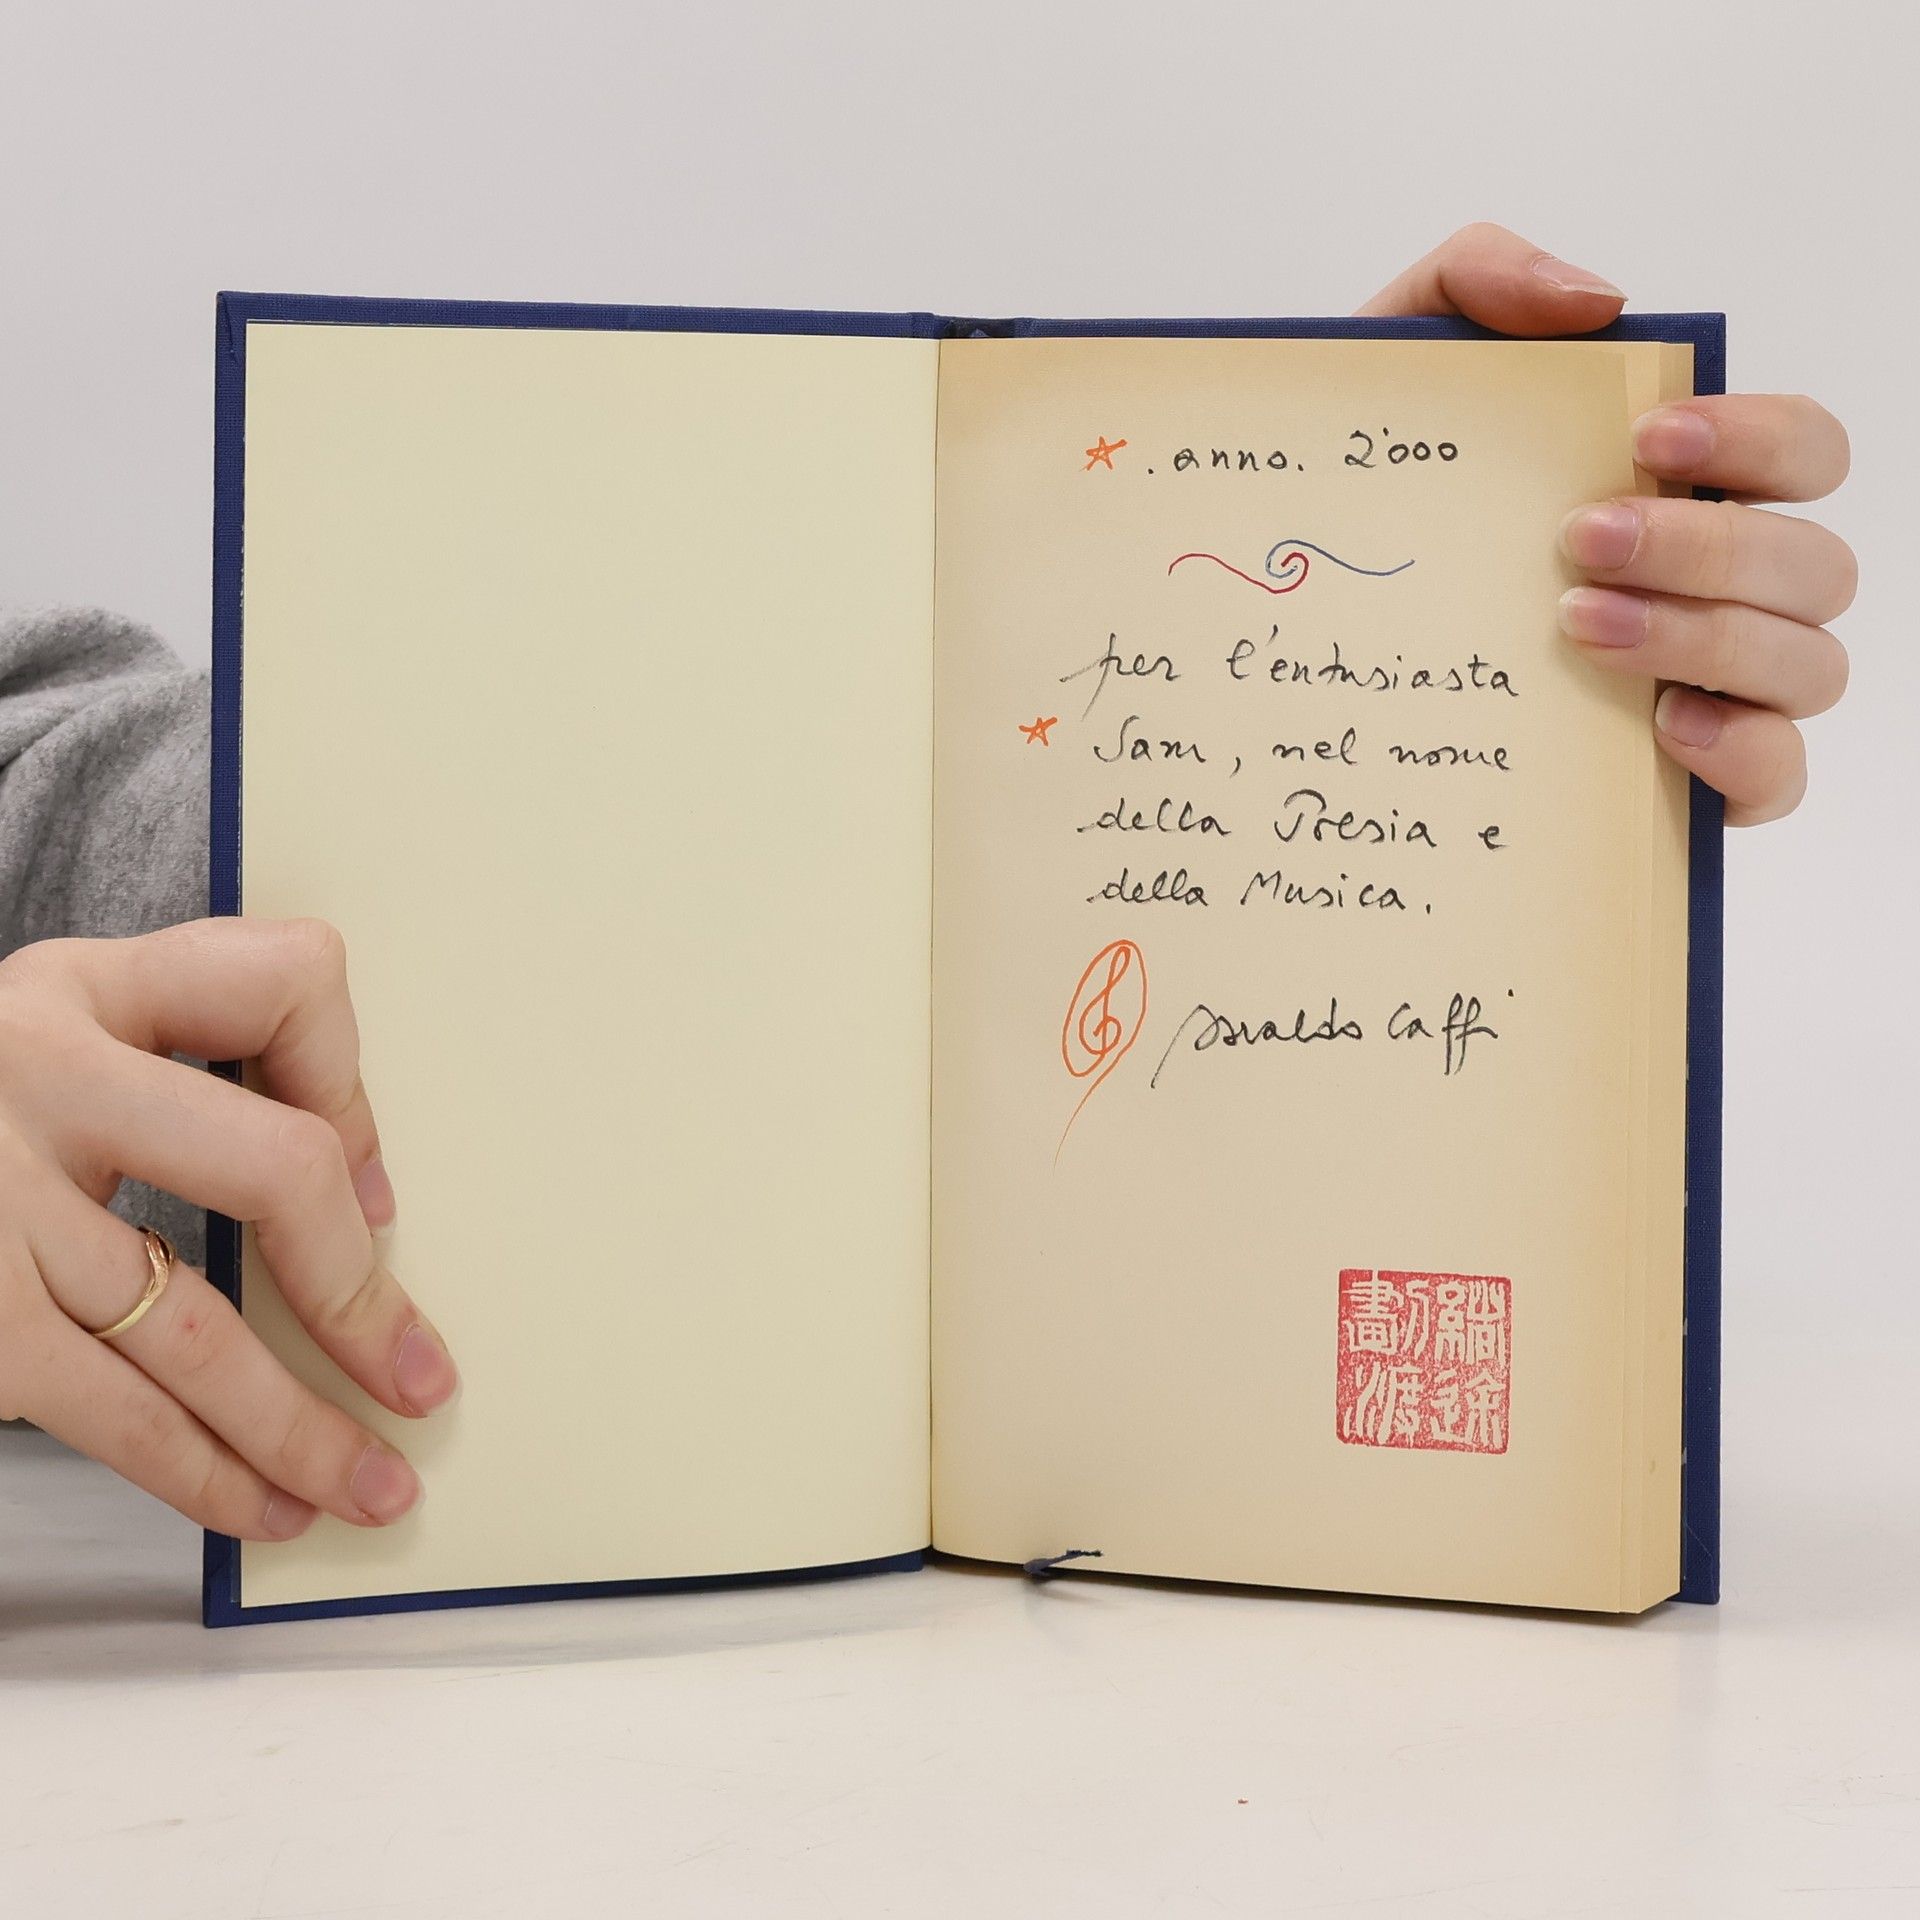 . anno. 2'000
per l'entusiasta
Sam, nel nome
della Poesia e
della Musica.
Osvaldo Caffi